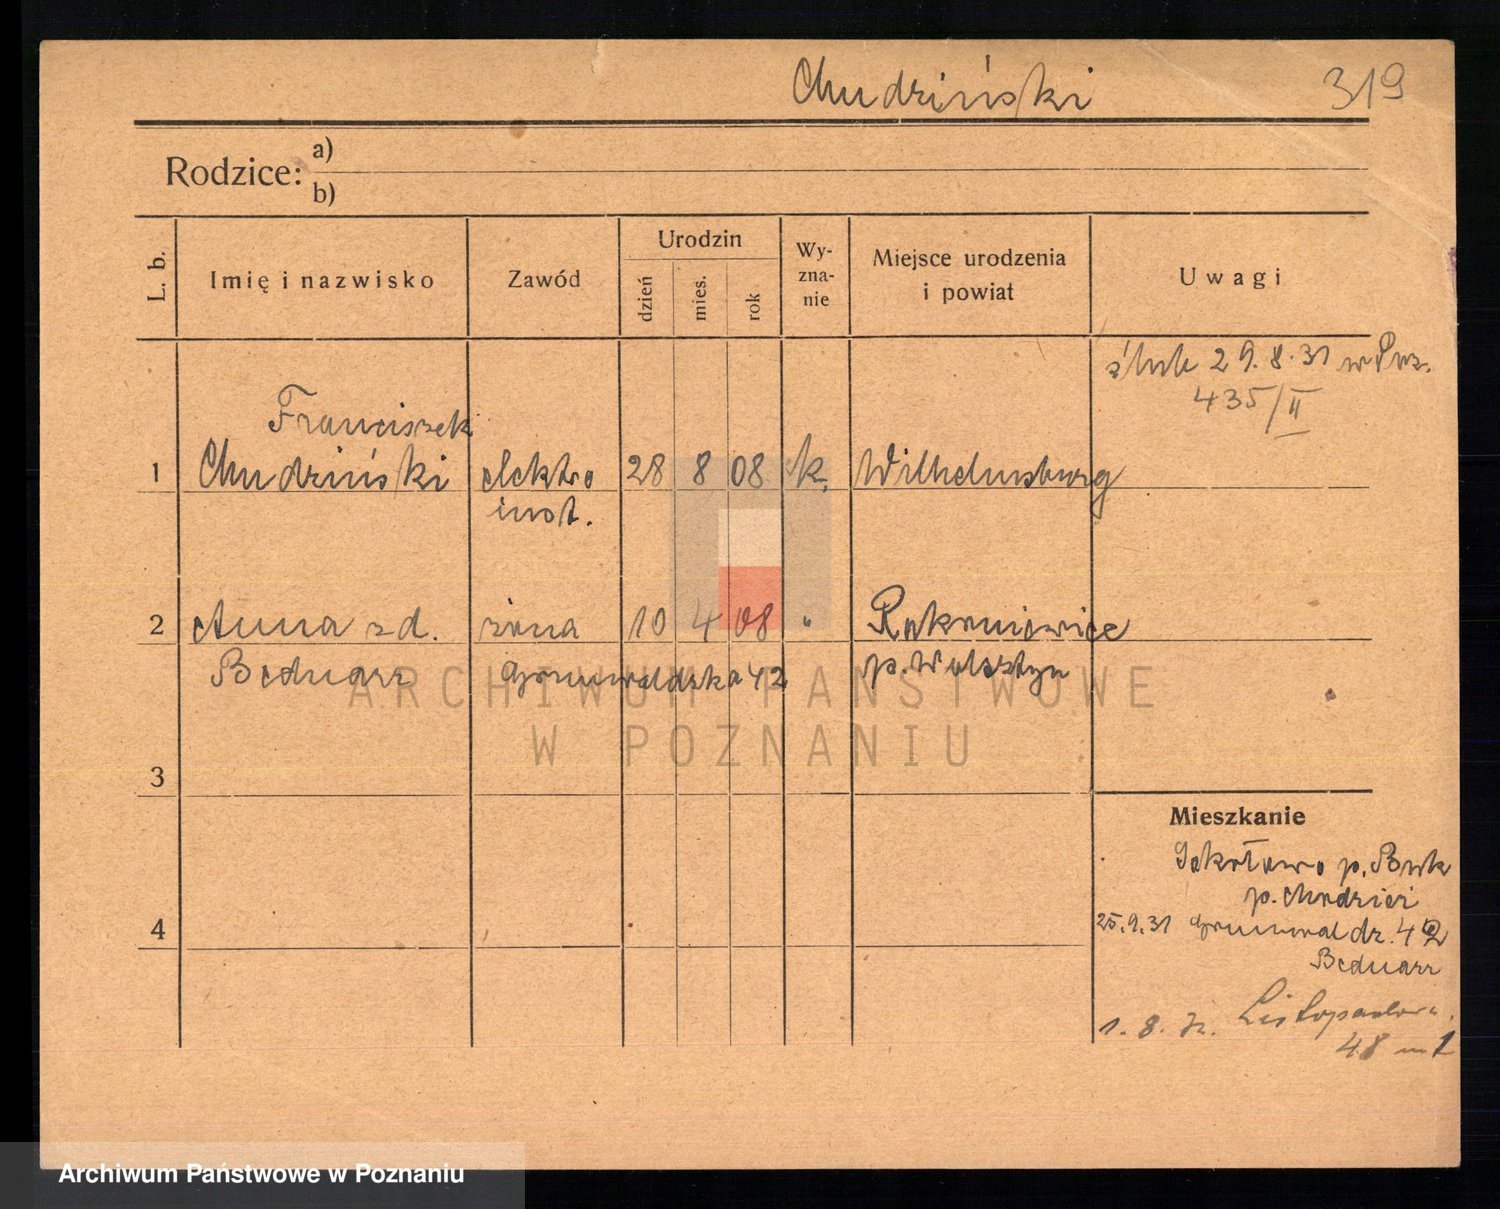 Chudziński 319
Rodzice: a)
b)
L. b.
Imię i nazwisko
Zawód
Urodzin
dzień
mies.
rok
Wy-
zna-
nie
Miejsce urodzenia
i powiat
Uwagi
ślub 29.8.31 w Poz.
435/II
Franciszek
1 Chudziński elektro 28 8 08 k. Wilhelmsburg
inst.
2 Anna zd. żona 10 4 08 " Rakoniewice
Bednarz Grunwaldzka 42 p. Wolsztyn
3
Mieszkanie
Sokołowo p. Buk
p. Chudzici
4
25.9.31 Grunwaldz. 42
Bednarz
1. 8. 32. Listopadowa
48 m 1
ARCHIWUM PAŃSTWOWE
W POZNANIU
Archiwum Państwowe w Poznaniu